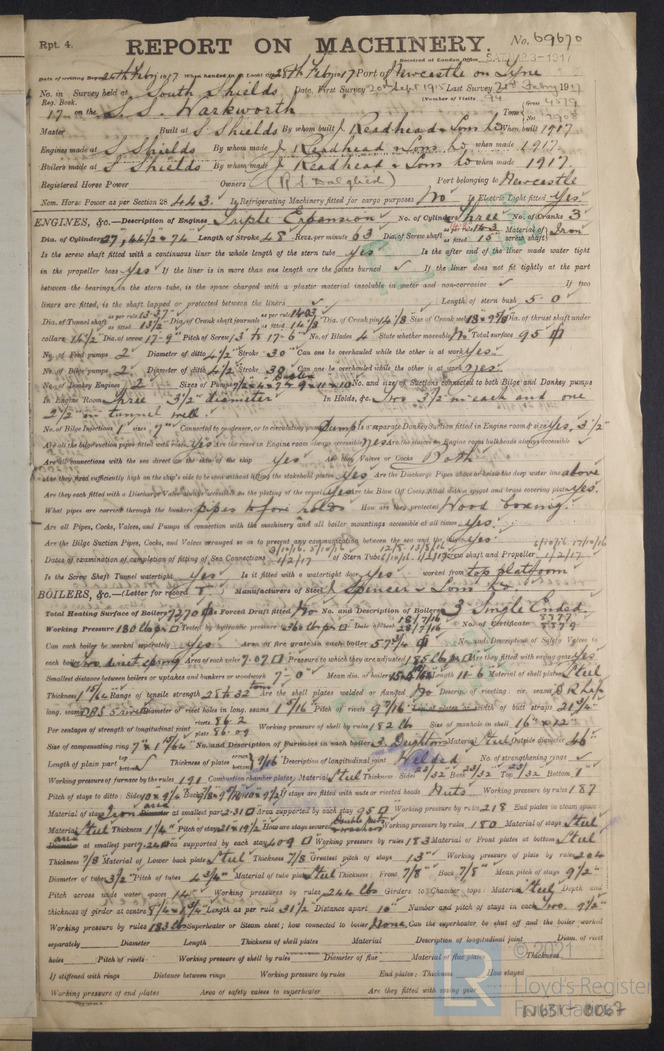 Rpt. 4.
REPORT ON MACHINERY.
No. 69670
Received at London Office
Date of writing Report 20th Feby 1917 When handed in at Local Office 28th Feby 1917 Port of Newcastle on Tyne
No. in Survey held at South Shields Date, First Survey 20th Sept 1915 Last Survey 1917
Reg. Book. (Number of Visits 94
17 on the S.S. Warkworth Tons Gross 4519
Master Built at S Shields By whom built J. Readhead & Sons Ld When built 1917
Engines made at S Shields By whom made J. Readhead & Sons Ld when made 1917
Boilers made at S Shields By whom made J. Readhead & Sons Ld when made 1917
Registered Horse Power Owners (R S Dalgliesh) Port belonging to Newcastle
Nom. Horse Power as per Section 28 443 Is Refrigerating Machinery fitted for cargo purposes No Is Electric Light fitted Yes
ENGINES, &c.—Description of Engines Triple Expansion No. of Cylinders Three No. of Cranks 3
Dia. of Cylinders 27, 44 1/2 & 74 Length of Stroke 48 Revs. per minute 63 Dia. of Screw shaft as per rule 14.3 as fitted 15" Material of screw shaft Iron
Is the screw shaft fitted with a continuous liner the whole length of the stern tube yes Is the after end of the liner made water tight
in the propeller boss yes If the liner is in more than one length are the joints burned If the liner does not fit tightly at the part
between the bearings in the stern tube, is the space charged with a plastic material insoluble in water and non-corrosive If two
liners are fitted, is the shaft lapped or protected between the liners Length of stern bush 5-0
Dia. of Tunnel shaft as per rule 13.37 as fitted 13 1/2 Dia. of Crank shaft journals as per rule 14.03 as fitted 14 1/8 Dia. of Crank pin 14 1/8 Size of Crank webs Dia. of thrust shaft under
collars 14 1/2 Dia. of screw 17-9 Pitch of Screw to 17-6 No. of Blades 4 State whether moveable No Total surface 95
No. of Feed pumps 2 Diameter of ditto 4 1/2 Stroke 30 Can one be overhauled while the other is at work yes
No. of Bilge pumps 2 Diameter of ditto 4 1/2 Stroke 30 Can one be overhauled while the other is at work yes
No. of Donkey Engines 2 Sizes of Pumps No. and size of Suctions connected to both Bilge and Donkey pumps
In Engine Room Three 3 1/2 diameter In Holds, &c. Two 3 1/2 in each and one
2 1/2 in tunnel well
No. of Bilge Injections 1 sizes Connected to condenser, or to circulating pump Pump Is a separate Donkey Suction fitted in Engine room & size Yes, 3 1/2"
Are all the bilge suction pipes fitted with roses Yes Are the roses in Engine room always accessible Yes Are the sluices on Engine room bulkheads always accessible
Are all connections with the sea direct on the skin of the ship Yes Are they Valves or Cocks Both
Are they fixed sufficiently high on the ship's side to be seen without lifting the stokehold plates Yes Are the Discharge Pipes above or below the deep water line above
Are they each fitted with a Discharge Valve always accessible on the plating of the vessel Yes Are the Blow Off Cocks fitted with a spigot and brass covering plate Yes
What pipes are carried through the bunkers pipes to fore holds How are they protected Wood boxing
Are all Pipes, Cocks, Valves, and Pumps in connection with the machinery and all boiler mountings accessible at all times yes
Are the Bilge Suction Pipes, Cocks, and Valves arranged so as to prevent any communication between the sea and the bilges
Dates of examination of completion of fitting of Sea Connections 1/2/17 of Stern Tube Screw shaft and Propeller 1/2/17
Is the Screw Shaft Tunnel watertight Yes Is it fitted with a watertight door Yes worked from top platform
BOILERS, &c.—(Letter for record) Manufacturers of Steel J Spencer & Sons Ld.
Total Heating Surface of Boilers 7370 Is Forced Draft fitted No No. and Description of Boilers 3 Single Ended
Working Pressure 180 lb Tested by hydraulic pressure to Date of test No. of Certificate
Can each boiler be worked separately Yes Area of fire grate in each boiler 57 3/4 No. and Description of Safety Valves to
each boiler Two direct spring Area of each valve 7.07 Pressure to which they are adjusted 185 lb Are they fitted with easing gear Yes
Smallest distance between boilers or uptakes and bunkers or woodwork 7-0 Mean dia. of boilers Length 11-6 Material of shell plates Steel
Thickness Range of tensile strength 28 to 32 tons Are the shell plates welded or flanged No Descrip. of riveting: cir. seams D R Lap
long. seams Diameter of rivet holes in long. seams 1 5/16 Pitch of rivets Lap of plates or width of butt straps 21 3/4
Per centages of strength of longitudinal joint rivets 86.2 plate 86.09 Working pressure of shell by rules 182 lb Size of manhole in shell 16" x 12"
Size of compensating ring No. and Description of Furnaces in each boiler 3 Deighton Material Steel Outside diameter 46
Length of plain part top bottom Thickness of plates crown bottom 9/16 Description of longitudinal joint Welded No. of strengthening rings
Working pressure of furnace by the rules 191 Combustion chamber plates: Material Steel Thickness: Sides 23/32 Back 23/32 Top 23/32 Bottom 1"
Pitch of stays to ditto: Sides Back Top If stays are fitted with nuts or riveted heads Nuts Working pressure by rules 187
Material of stays Iron area at smallest part 2.31 Area supported by each stay 95 Working pressure by rules 218 End plates in steam space:
Material Steel Thickness 1 1/4 Pitch of stays How are stays secured Double nuts & washers Working pressure by rules 180 Material of stays Steel
area at smallest part Area supported by each stay 409 Working pressure by rules 183 Material of Front plates at bottom Steel
Thickness 7/8 Material of Lower back plate Steel Thickness 7/8 Greatest pitch of stays 13" Working pressure of plate by rules 204
Diameter of tubes 3 1/2 Pitch of tubes 4 3/4" Material of tube plates Steel Thickness: Front 7/8" Back 7/8" Mean pitch of stays 9 1/2"
Pitch across wide water spaces 14" Working pressures by rules 244 lbs Girders to Chamber tops: Material Steel Depth and
thickness of girder at centre Length as per rule 31 1/2 Distance apart 10" Number and pitch of stays in each Two 9 1/2"
Working pressure by rules 183 lb Superheater or Steam chest; how connected to boiler None Can the superheater be shut off and the boiler worked
separately Diameter Length Thickness of shell plates Material Description of longitudinal joint Diam. of rivet
holes Pitch of rivets Working pressure of shell by rules Diameter of flue Material of flue plates Thickness
If stiffened with rings Distance between rings Working pressure by rules End plates: Thickness How stayed
Working pressure of end plates Area of safety valves to superheater Are they fitted with easing gear
© 2021
LR
Lloyd's Register
Foundation
N631-0067